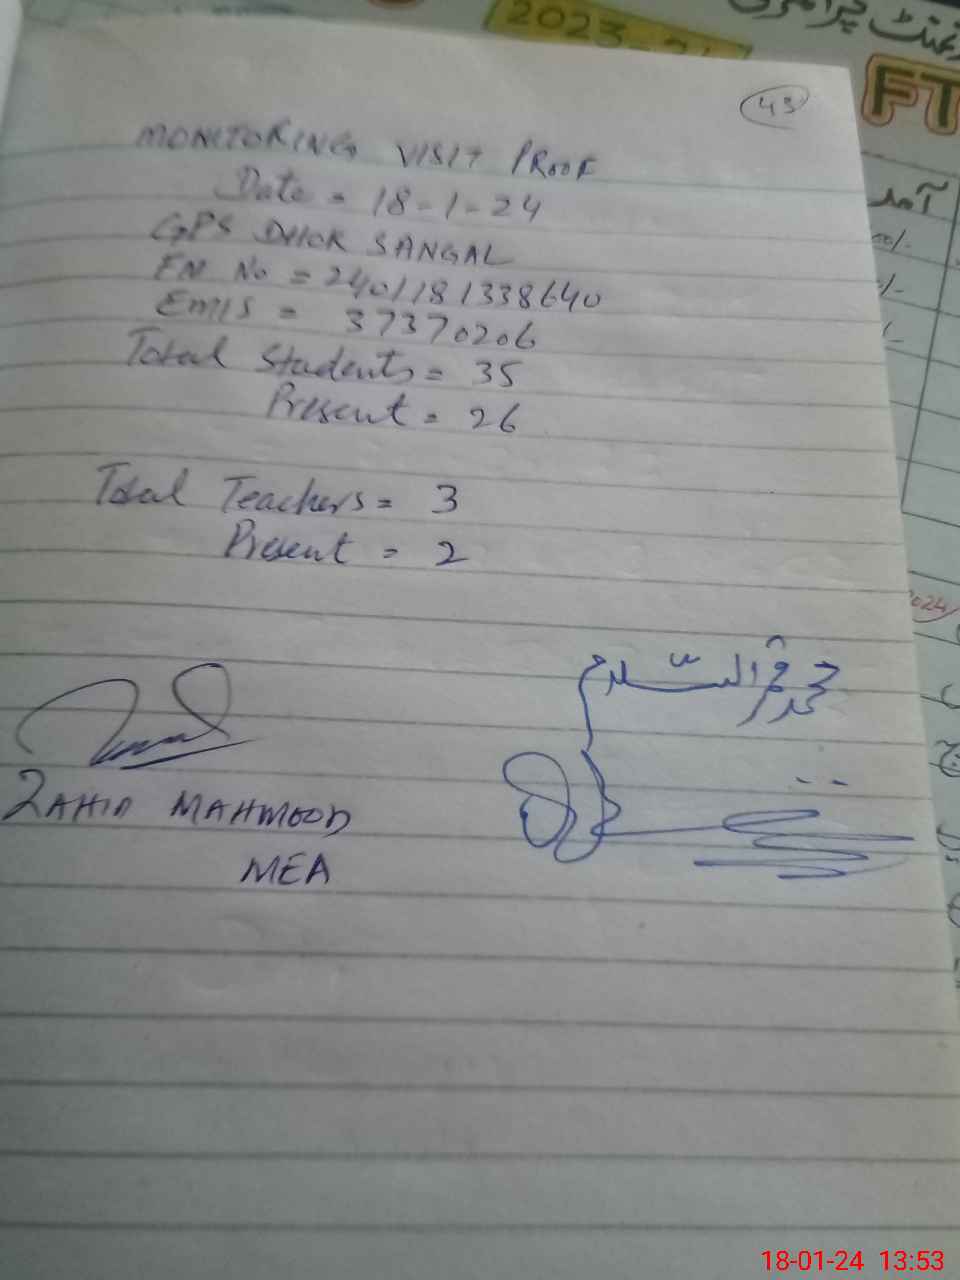 2023-24
FT
آمد
43
MONITORING VISIT PROOF
Date = 18-1-24
GPS DHOK SANGAL
EN No = 2401181338640
Emis = 37370206
Total Students = 35
Present = 26
Total Teachers = 3
Present = 2
2024/
ZAHID MAHMOOD
MEA
18-01-24 13:53